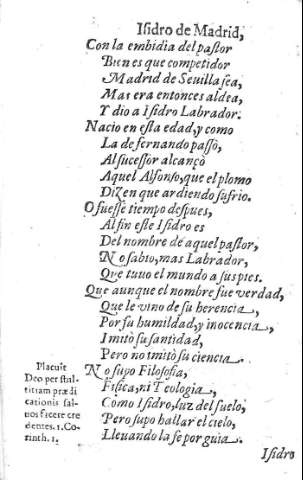 Isidro de Madrid,
Con la embidia del pastor
Bien es que competidor
Madrid de Seuilla sea,
Mas era entonces aldea,
Y dio a Isidro Labrador.
Nacio en esta edad, y como
La de fernando passò,
Al sucessor alcançò
Aquel Alfonso, que el plomo
Dizen que ardiendo sufrio.
O fuesse tiempo despues,
Al fin este Isidro es
Del nombre de aquel pastor,
No sabio, mas Labrador,
Que tuuo el mundo a sus pies.
Que aunque el nombre fue verdad,
Que le vino de su herencia,
Por su humildad, y inocencia,
Imitò su santidad,
Pero no imitò su ciencia.
No supo Filosofia,
Fisica, ni Teologia,
Como Isidro, luz del suelo,
Pero supo hallar el cielo,
Lleuando la fe por guia.
Placuit
Deo per stul-
titiam prædi
cationis sal-
uos facere cre
dentes. 1. Co-
rinth. 1.
Isidro